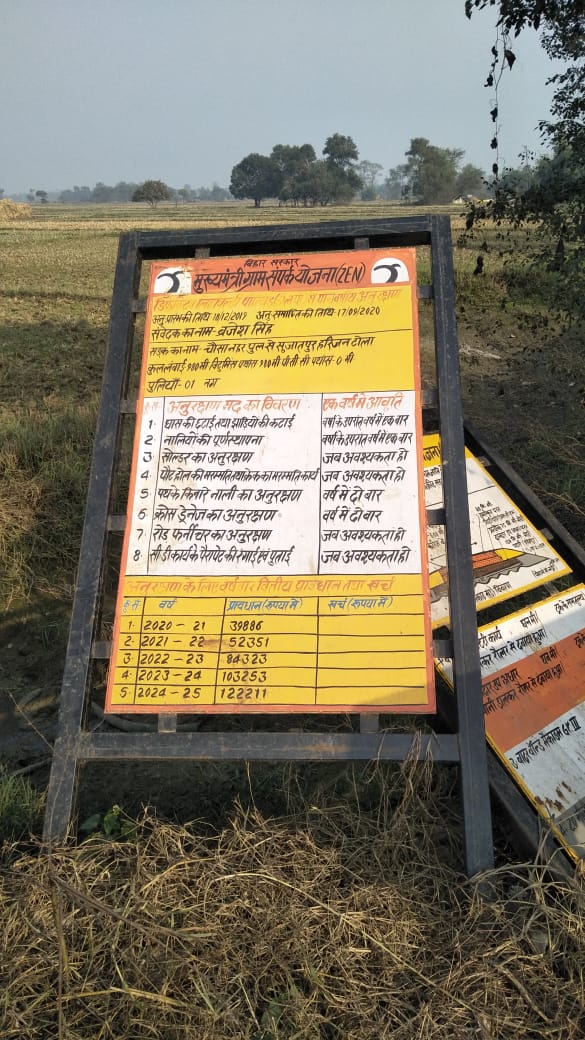 बिहार सरकार
मुख्यमंत्री ग्राम संपर्क योजना (GEN)
अनु प्रारम्भ की तिथि 18/12/2019 अनु समाप्ति की तिथि 17/09/2020
संवेदक का नाम- ब्रजेश सिंह
सड़क का नाम - चौसा नहर पुल से सुजातपुर हरिजन टोला
कुल लंबाई 980 मी० बिटुमिन पथांश 980 मी० पीसी सी पथांस- 0 मी
पुलियाँ- 01 नग
क्र.सं. अनुरक्षण मद का विवरण एक वर्ष में आवृति
1 घास की हटाई तथा झाडियो की कटाई वर्षा के उपरांत वर्ष मे एक बार
2 नालियो की पूर्णस्थापना वर्षा के उपरांत वर्ष मे एक बार
3 सोल्डर का अनुरक्षण जब अवश्यकता हो
4 पोट होल की मरम्मति तथा क्रेक का मरम्मति कार्य जब अवश्यकता हो
5 पथ के किनारे नाली का अनुरक्षण वर्ष मे दो बार
6 क्रोस ड्रेनेज का अनुरक्षण वर्ष मे दो बार
7 रोड फर्नीचर का अनुरक्षण जब अवश्यकता हो
8 सी.डी कार्य के पैरापेट की रंगाई एवं पुताई जब अवश्यकता हो
अनुरक्षण के लिए वर्षवार वित्तीय प्रावधान तथा खर्च
क्र.सं. वर्ष प्रावधान (रूपया मे) खर्च (रूपया मे)
1. 2020 - 21 39886
2. 2021 - 22 52351
3. 2022 - 23 84323
4. 2023 - 24 103253
5. 2024 - 25 122211